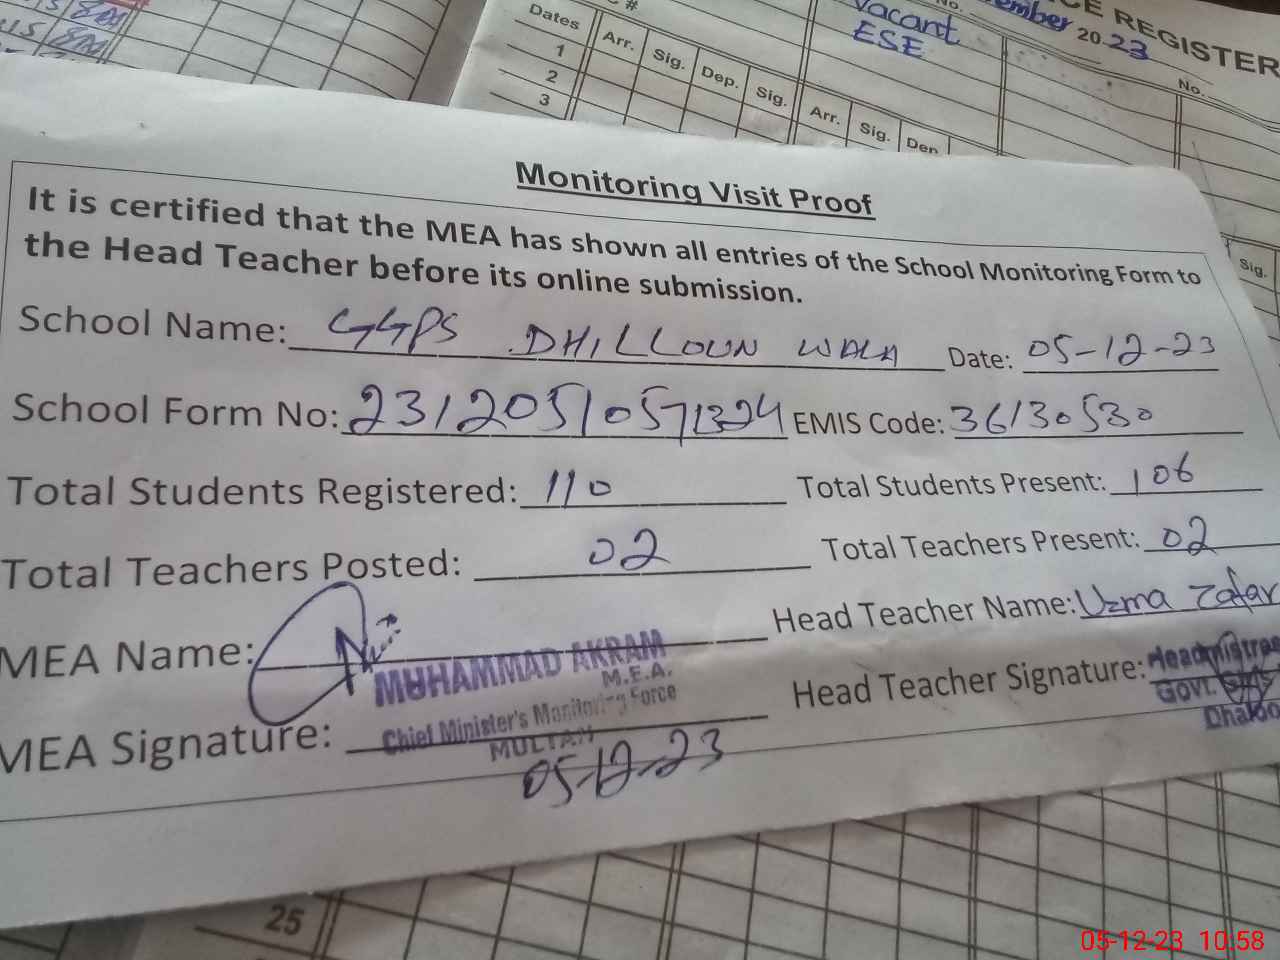 CE REGISTER
ember 2023
No.
No.
#
Vacant
ESE
Dates
Arr. Sig. Dep. Sig. Arr. Sig. Dep
1
2
3
Sig.
Monitoring Visit Proof
It is certified that the MEA has shown all entries of the School Monitoring Form to
the Head Teacher before its online submission.
School Name: GGPS DHILLOUN WALA Date: 05-12-23
School Form No: 23120510571324 EMIS Code: 36130530
Total Students Registered: 110 Total Students Present: 106
Total Teachers Posted: 02 Total Teachers Present: 02
MEA Name: Head Teacher Name: Uzma Zafar
MUHAMMAD AKRAM
M.E.A.
Chief Minister's Monitoring Force
MULTAN
MEA Signature: Head Teacher Signature:
Headmistres
Govt.
05-12-23
25
05-12-23 10:58